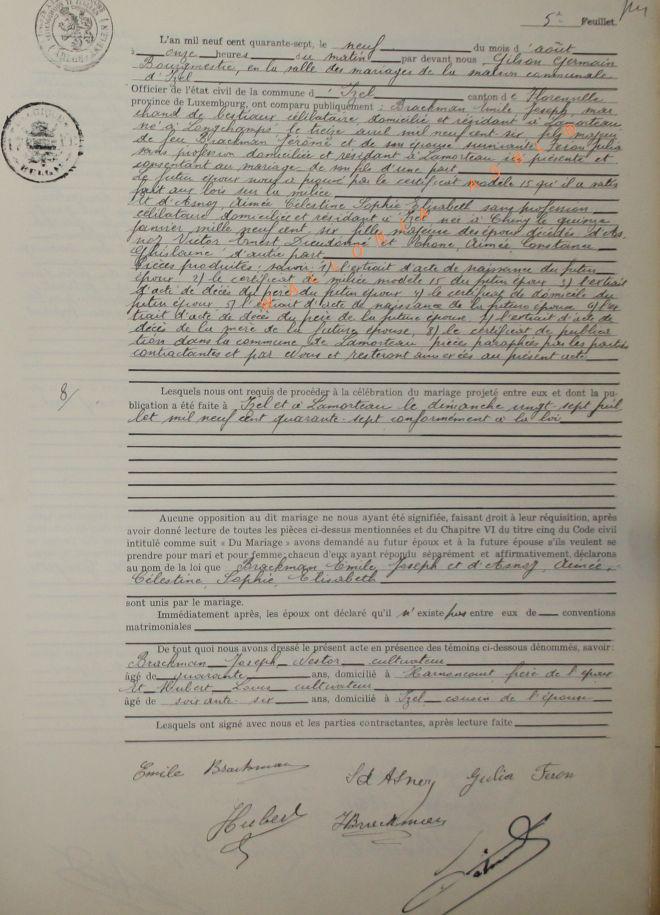 5e Feuillet.
L'an mil neuf cent quarante-sept, le neuf du mois d'août
à onze heures du matin par devant nous Gilson Germain
Bourgmestre, en la salle des mariages de la maison communale
d'Izel
Officier de l'état civil de la commune d'Izel canton de Florenville
province de Luxembourg, ont comparu publiquement : Brackman Emile Joseph, mar
chand de bestiaux célibataire, domicilié et résidant à Lamorteau
né à Longchamps le treize avril mil neuf cent six fils majeur
de feu Brackman Jérome et de son épouse survivante Feron Julia
sans profession domiciliée et résidant à Lamorteau ici présente et
consentant au mariage de son fils d'une part
Le futur époux nous a prouvé par le certificat modèle 15 qu'il a satis
fait aux lois sur la milice
Et d'Asnoy, Aimée Célestine Sophie Elisabeth sans profession
célibataire domiciliée et résidant à Izel née à Chiny le quinze
janvier mil neuf cent six fille majeure des époux décédés d'As
noy Victor Ernest Dieudonné et Aimée Constance
Ghislaine d'autre part
Pièces produites : savoir : 1) l'extrait d'acte de naissance du futur
époux 2) le certificat de milice modèle 15 du futur époux 3) l'extrait
d'acte de décès du père du futur époux 4) le certificat de domicile du
futur époux 5) l'extrait d'acte de naissance de la future épouse 6) l'ex
trait d'acte de décès du père de la future épouse 7) l'extrait d'acte de
décès de la mère de la future épouse, 8) le certificat de publica
tion dans la commune de Lamorteau pièces paraphées par les parties
contractantes et par Nous et resteront annexées au présent acte
8/
Lesquels nous ont requis de procéder à la célébration du mariage projeté entre eux et dont la pu-
blication a été faite à Izel et à Lamorteau le dimanche vingt-sept juil
let mil neuf cent quarante-sept conformément à la loi
Aucune opposition au dit mariage ne nous ayant été signifiée, faisant droit à leur réquisition, après
avoir donné lecture de toutes les pièces ci-dessus mentionnées et du Chapitre VI du titre cinq du Code civil
intitulé comme suit « Du Mariage » avons demandé au futur époux et à la future épouse s'ils veulent se
prendre pour mari et pour femme; chacun d'eux ayant répondu séparément et affirmativement, déclarons
au nom de la loi que Brackman Emile Joseph et d'Asnoy, Aimée,
Célestine, Sophie, Elisabeth
sont unis par le mariage.
Immédiatement après, les époux ont déclaré qu'il n'existe pas entre eux de conventions
matrimoniales
De tout quoi nous avons dressé le présent acte en présence des témoins ci-dessous dénommés, savoir:
Brackman Joseph Nestor cultivateur
âgé de quarante ans, domicilié à Harnoncourt frère de l'époux
Et Hubert Louis cultivateur
âgé de soixante six ans, domicilié à Izel cousin de l'épouse
Lesquels ont signé avec nous et les parties contractantes, après lecture faite
Emile Brackman
S d'Asnoy
Julia Feron
Hubert
JBrackman